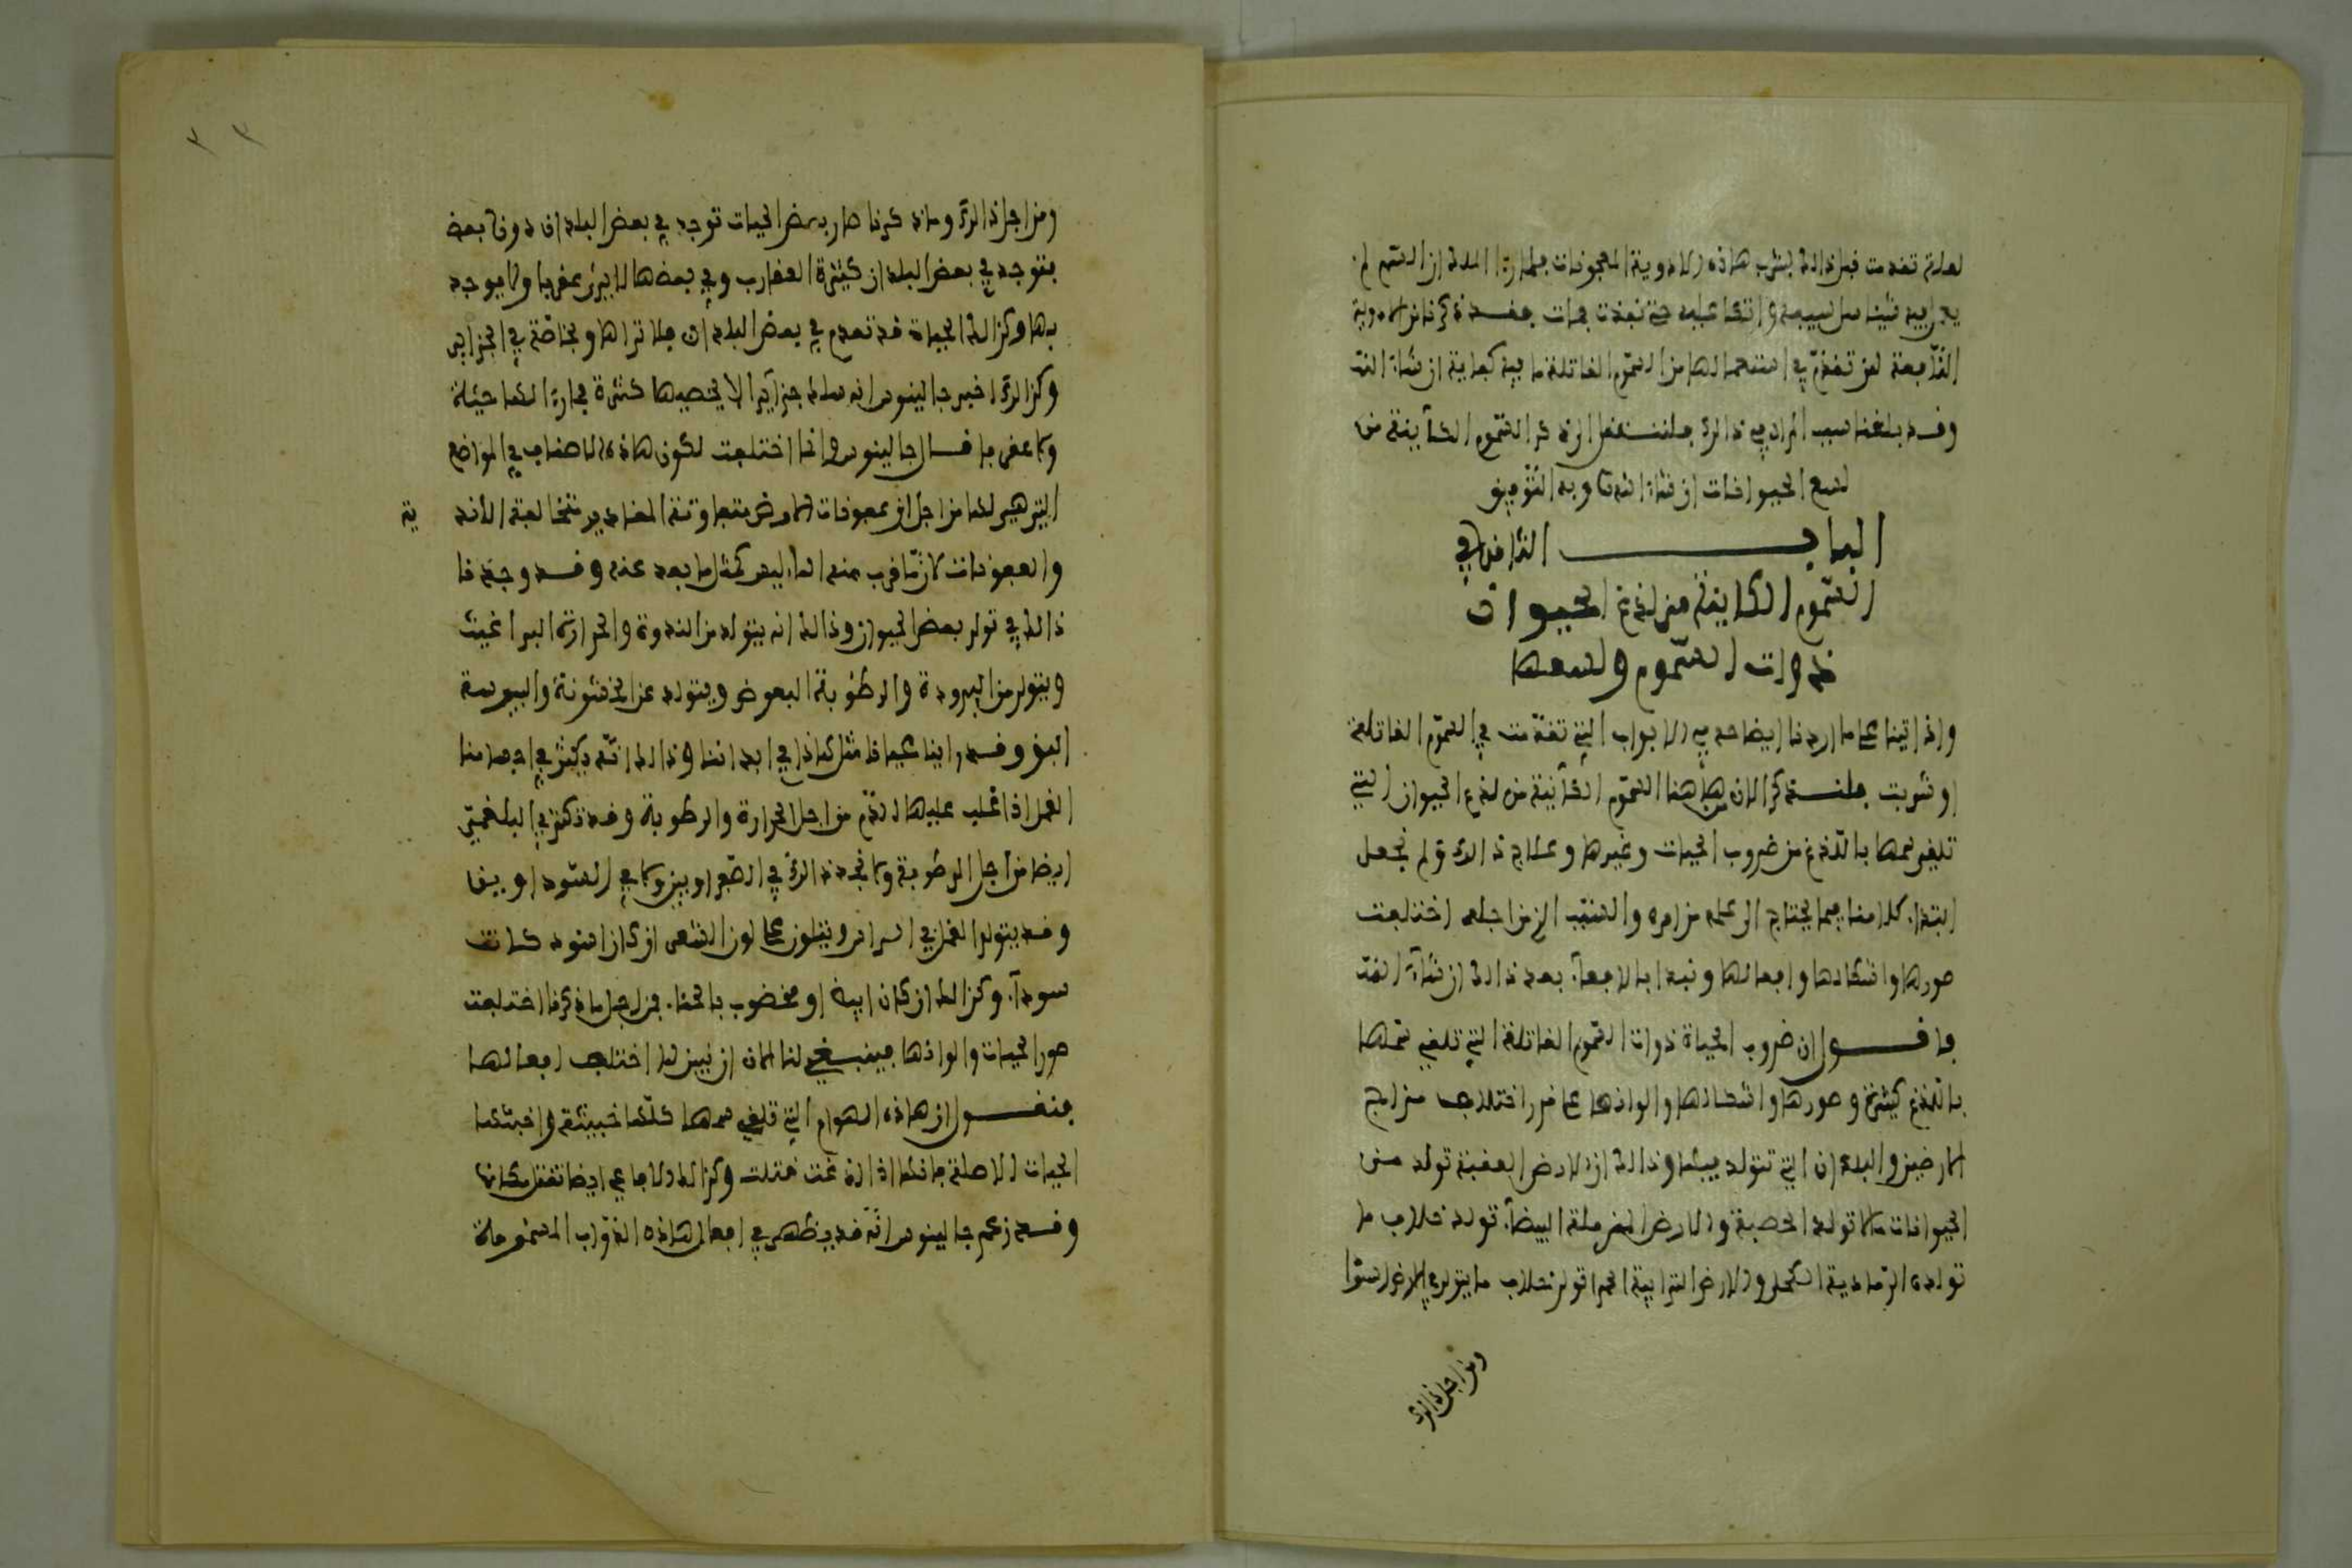 لعلة تقدمت قبل ذالك بشرب هاذه الادوية المعجونات فلما راا الملك ان السم لم
يجر فيه شيئا سل سيفه واتكا عليه حتى نفذت فمات فقد ذكرنا من الادوية
النافعة لمن تقدم في استعمالها من السموم القاتلة ما فيه كفاية ان شاء الله
وقد بلغنا سبب المراد في ذالك فلنستقل الى ذكر السموم الكاينة من
لسع الحيوانات ان شاء الله وبه التوفيق
الباب الثامن في
السموم الكاينة من لذغ الحيوان
ذوات السموم ولسعها
واذ اتينا على ما اردنا ايضاحه في الابواب التي تقدمت في السموم القاتلة
او شربت فلنذكر الان هاهنا السموم الكاينة من لذغ الحيوان التي
تلقي سمها بالذغ من ضروب الحيات وغيرها وعلاج ذالك ولم نجعل
ابتداء كلامنا فيما يحتاج الى علم من امره والسبب الذي من اجله اختلفت
صورها واشكالها وافعالها ونبدا بالافعاء بعد ذالك ان شاء الله
فاقول ان ضروب الحياة ذوات السموم القاتلة التي تلقي سمها
بالذغ كثيرة وصورها واشكالها والوانها على قدر اختلاف مزاج
الارضين والبلدان التي تتولد فيها وذالك ان الارض العفنة تولد من
الحيوانات ما لا تولد الخصبة والارض المرملة البيضاء تولد خلاف ما
تولده الرمادية الكحلة والارض الترابية الحمرا تولد خلاف ما يتولد في الارض السودا
ومن اجل ذالك
ومن اجل ذالك وما ذكرنا صار بعض الحيات توجد في بعض البلدان دون بعض
فتوجد في بعض البلدان كثيرة العقارب وفي بعضها لا يرى عقربا ولا يوجد
بها وكذالك الحياة قد تعدم في بعض البلدان فلا تراها وبخاصة في الجزاير
وكذالك اخبر جالينوس انه سلك جزايرا لا يحصيها كثرة فما راا لها حيلة
ولا عقربا قال جالينوس وانما اختلفت لكون هاذه الاصناف في المواضع
التي هي لها من اجل ان عفونات الارض متفاوتة المقادير متخالفة الاند ية
والعفونات لان ما قرب منه الماء ليس كمثل ما بعد عنه وقد وجدنا
ذالك في تولد بعض الحيوان وذالك انه يتولد من الندوة والحرارة البراغيث
ويتولد من البرودة والرطوبة البعوض ويتولد عن الخشونة واليبوسة
البق وقد راينا عيانا مثل هاذا في ابداننا وذالك انه يكثر في اجسامنا
القمل اذا غلب عليها الدم من اجل الحرارة والرطوبة وقد تكثر في البلغميين
ايضا من اجل الرطوبة ولا نجد ذالك في الصفراويين ولا في السوداويين
وقد يتولد القمل في الراس ويتلون على لون الشعر ان كان اسود كانت
سوداء وكذالك ان كان ابيض او مخضوب بالحناء فمن اجل ما ذكرنا اختلفت
صور الحيات والوانها فينبغي لنا الان ان نبين لما اختلفت افعالها
فنقول ان هاذه الهوام التي تلقي سمها كلها خبيثة واخبثها
الحيات الاصلة فانها اذا لذغت قتلت وكذالك الافاعي ايضا تقتل مكانها
وقد زعم جالينوس انه قد يظهر في افعال هاذه الدواب المسمومة
٣٣